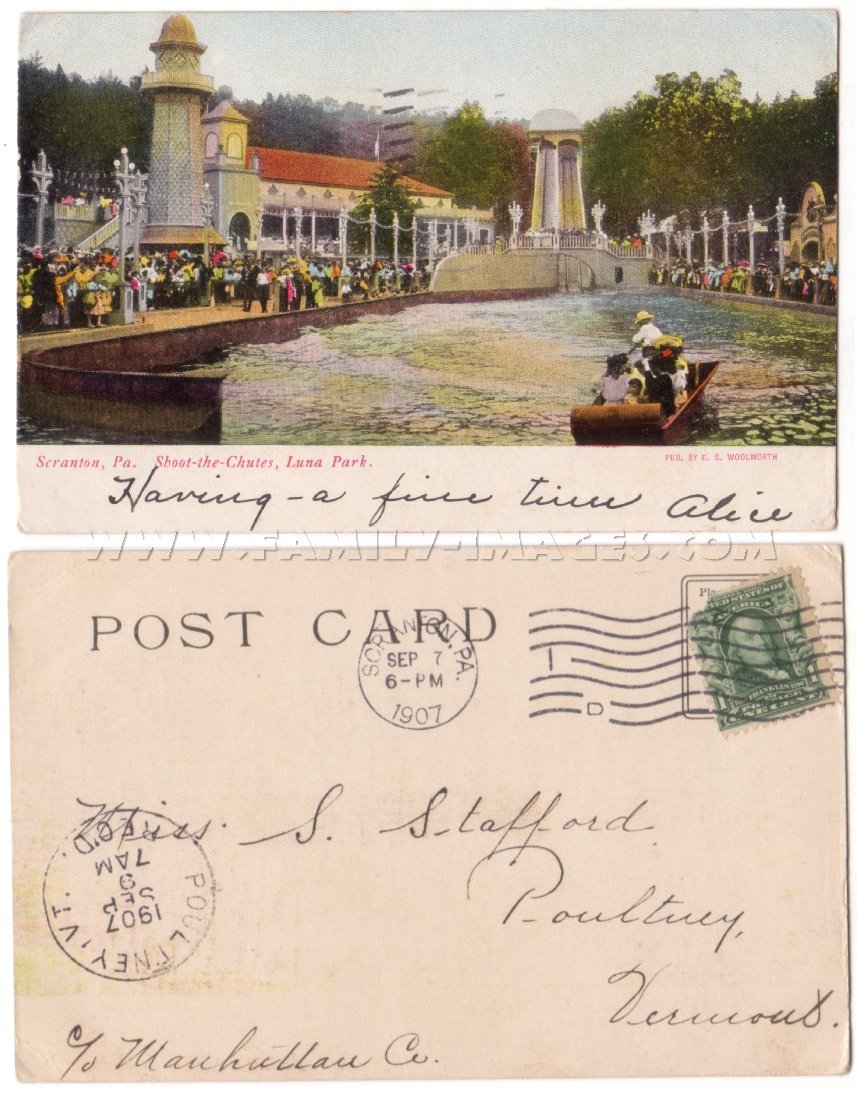 Scranton, Pa. Shoot-the-Chutes, Luna Park.
PUB. BY C. S. WOOLWORTH
Having - a fine time Alice
WWW.FAMILY-IMAGES.COM
POST CARD
SCRANTON, PA.
SEP 7
6-PM
1907
I
D
FRANKLIN
Miss. S. Stafford
Poultney,
Vermont.
POULTNEY, VT. REC'D.
7 AM
SEP
9
1907
c/o Manhattan Co.